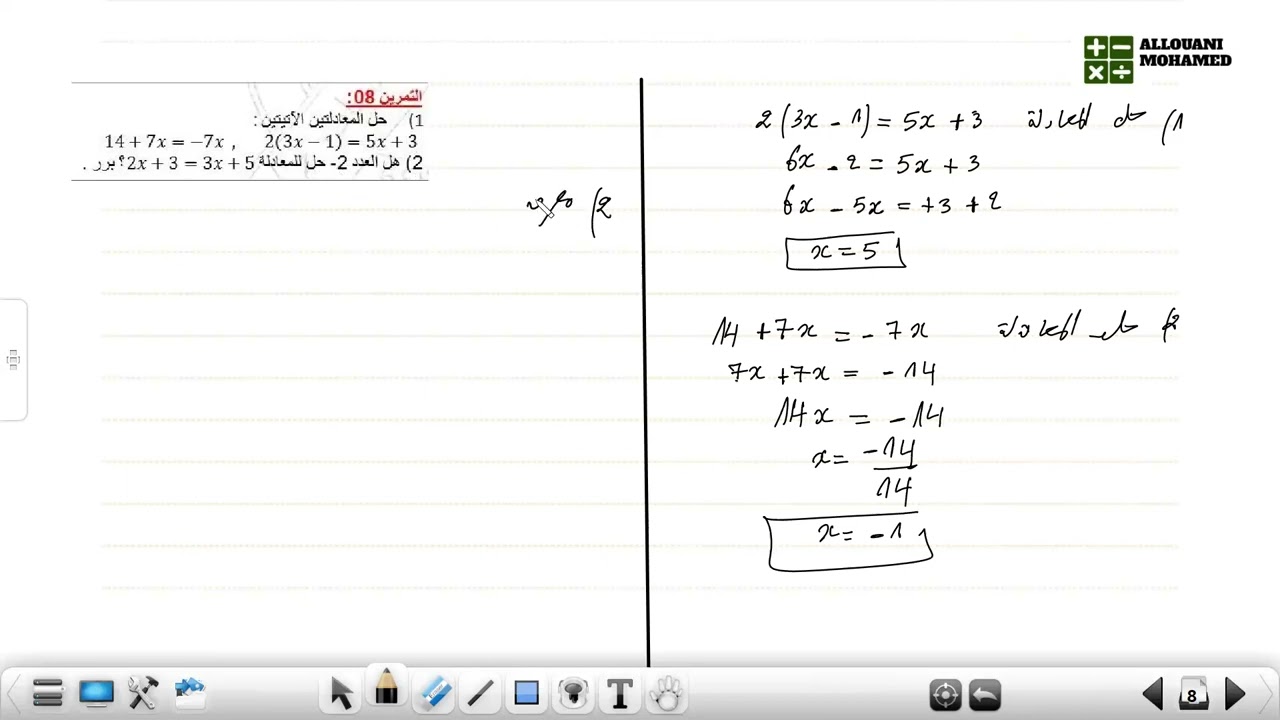 ALLOUANI
MOHAMED
التمرين 08:
1) حل المعادلتين الآتيتين :
14 + 7x = −7x , 2(3x − 1) = 5x + 3
2) هل العدد 2- حل للمعادلة 2x + 3 = 3x + 5؟ برر .
1) حل المعادلة 2(3x - 1) = 5x + 3
6x - 2 = 5x + 3
6x - 5x = +3 + 2
x = 5
2) حل المعادلة 14 + 7x = - 7x
7x + 7x = - 14
14x = - 14
x = -14/14
x = - 1
2)
8